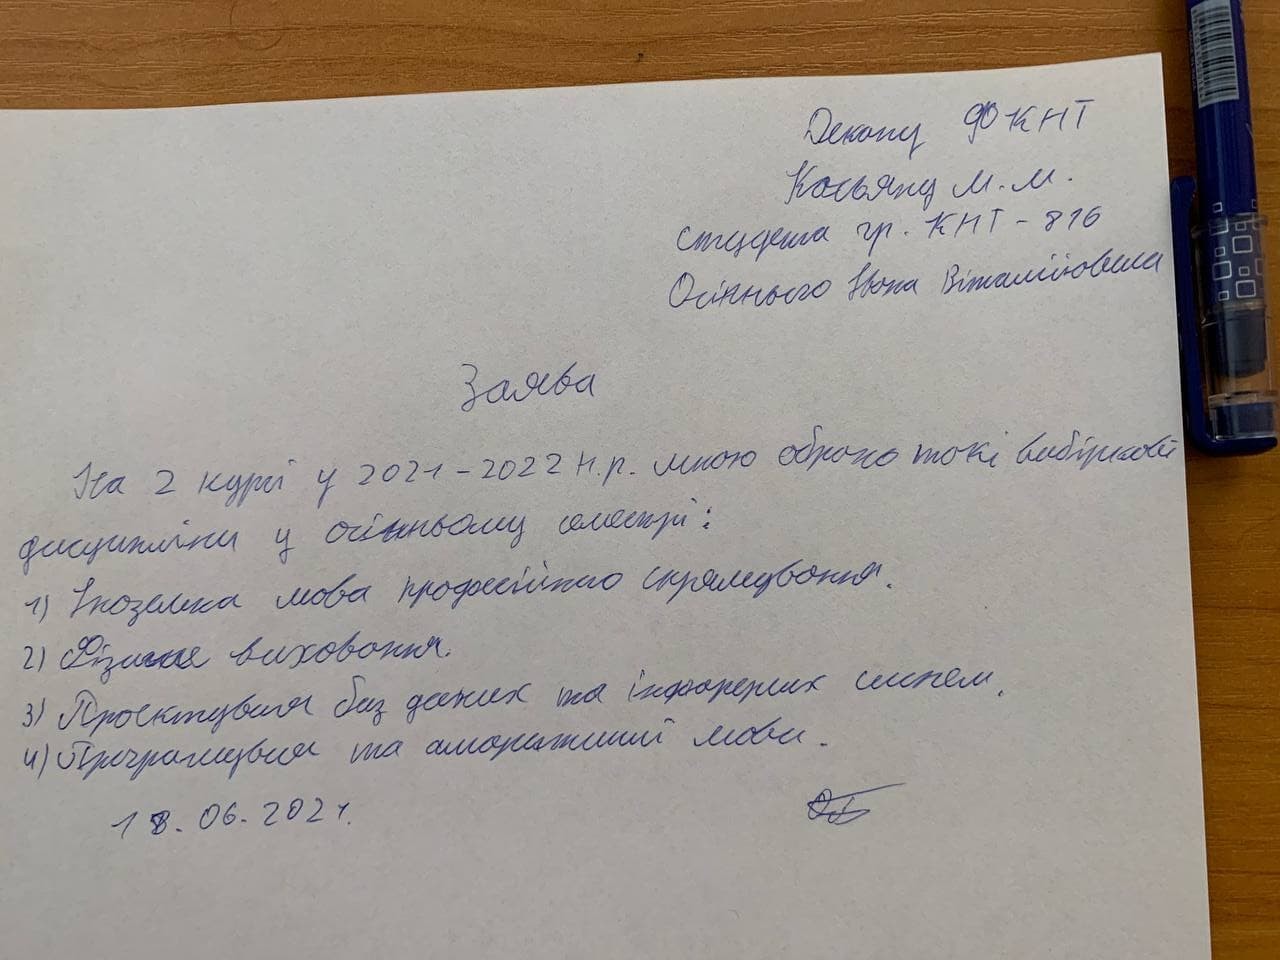 Декану ФКНТ
Касьяну М.М.
студента гр. КНТ-816
Осіннього Івана Віталійовича
Заява
На 2 курсі у 2021-2022 н.р. мною обрано такі вибіркові
дисципліни у осінньому семестрі:
1) Іноземна мова професійного спрямування.
2) Фізичне виховання.
3) Проєктування баз даних та інформаційних систем.
4) Програмування та алгоритмічні мови.
18.06.2021.